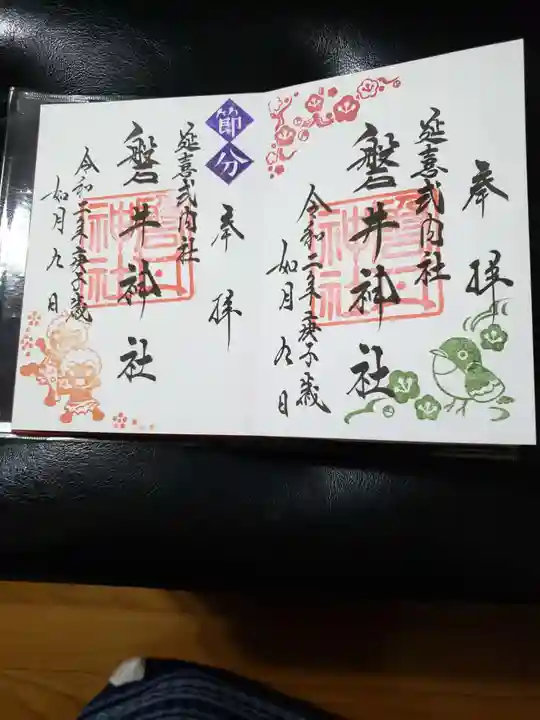 奉拝
延喜式内社
磐井神社
令和二年庚子歳
如月九日
節分
奉拝
延喜式内社
磐井神社
令和二年庚子歳
如月九日
磐井神社
磐井神社